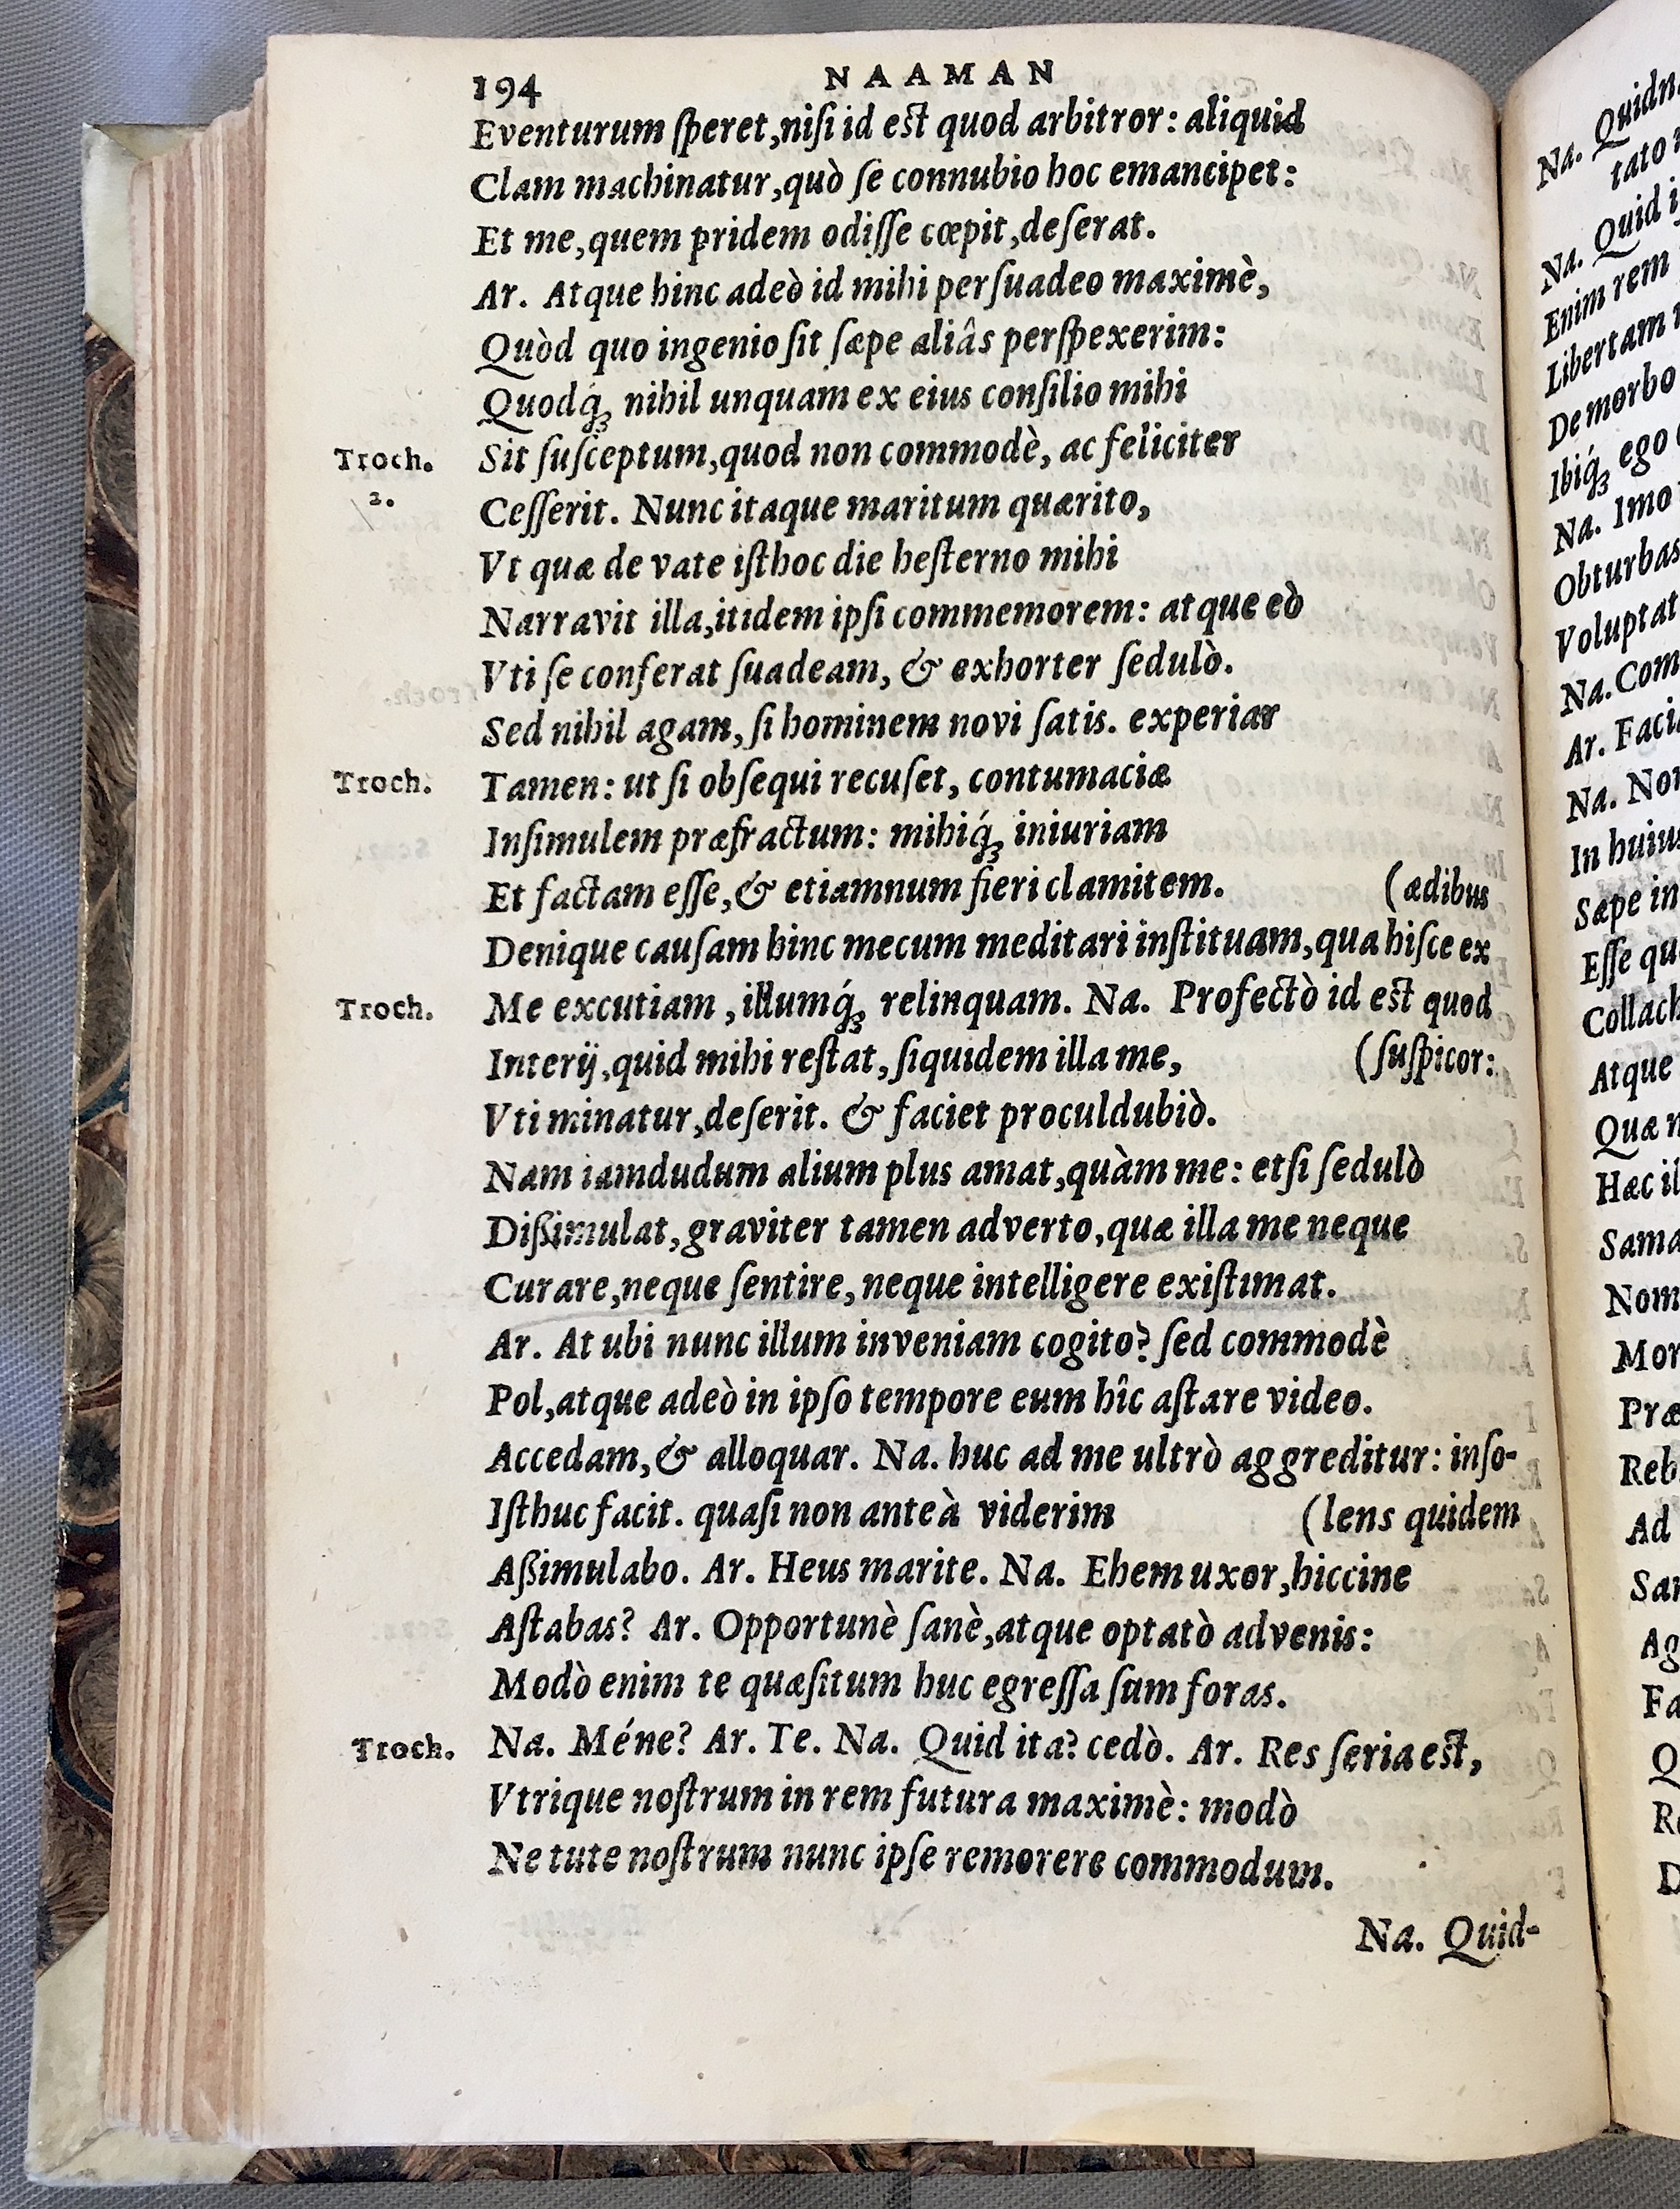 194 NAAMAN
Eventurum ſperet, niſi id est quod arbitror: aliquid
Clam machinatur, quò ſe connubio hoc emancipet:
Et me, quem pridem odiſſe cœpit, deſerat.
Ar. Atque hinc adeò id mihi perſuadeo maximè,
Quòd quo ingenio ſit ſæpe aliâs perſpexerim:
Quodq́ꝫ nihil unquam ex eius conſilio mihi
Troch. Sit ſuſceptum, quod non commodè, ac feliciter
2. Ceſſerit. Nunc itaque maritum quærito,
Vt quæ de vate iſthoc die heſterno mihi
Narravit illa, itidem ipſi commemorem: atque eò
Vti ſe conferat ſuadeam, & exhorter ſedulò.
Sed nihil agam, ſi hominem novi ſatis. experiar
Troch. Tamen: ut ſi obſequi recuſet, contumaciæ
Inſimulem præfractum: mihiq́ꝫ iniuriam
Et factam eſſe, & etiamnum fieri clamitem. (ædibus
Denique cauſam hinc mecum meditari inſtituam, qua hiſce ex
Troch. Me excutiam, illumq́ꝫ relinquam. Na. Profectò id est quod
Interij, quid mihi reſtat, ſiquidem illa me, (ſuſpicor:
Vti minatur, deſerit. & faciet proculdubiò.
Nam iamdudum alium plus amat, quàm me: etſi ſedulò
Dißimulat, graviter tamen adverto, quæ illa me neque
Curare, neque ſentire, neque intelligere exiſtimat.
Ar. At ubi nunc illum inveniam cogito? ſed commodè
Pol, atque adeò in ipſo tempore eum hîc aſtare video.
Accedam, & alloquar. Na. huc ad me ultrò aggreditur: inſo-
Iſthuc facit. quaſi non anteà viderim (lens quidem
Aßimulabo. Ar. Heus marite. Na. Ehem uxor, hiccine
Aſtabas? Ar. Opportunè ſanè, atque optatò advenis:
Modò enim te quæſitum huc egreſſa ſum foras.
Troch. Na. Méne? Ar. Te. Na. Quid ita? cedò. Ar. Res ſeria est,
Vtrique noſtrum in rem futura maximè: modò
Ne tute noſtrum nunc ipſe remorere commodum.
Na. Quid-
Na. Quidn
tato
Na. Quid
Enim rem
Libertam
De morbo
Ibiq́ꝫ ego
Na. Imo
Obturbas
Voluptat
Na. Com
Ar. Faci
Na. Non
In huius
Sæpe in
Eſſe qu
Collach
Atque
Quæ
Hæc il
Sama
Nom
Mor
Præ
Reb
Ad
Sa
Ag
Fa
Q
R
D